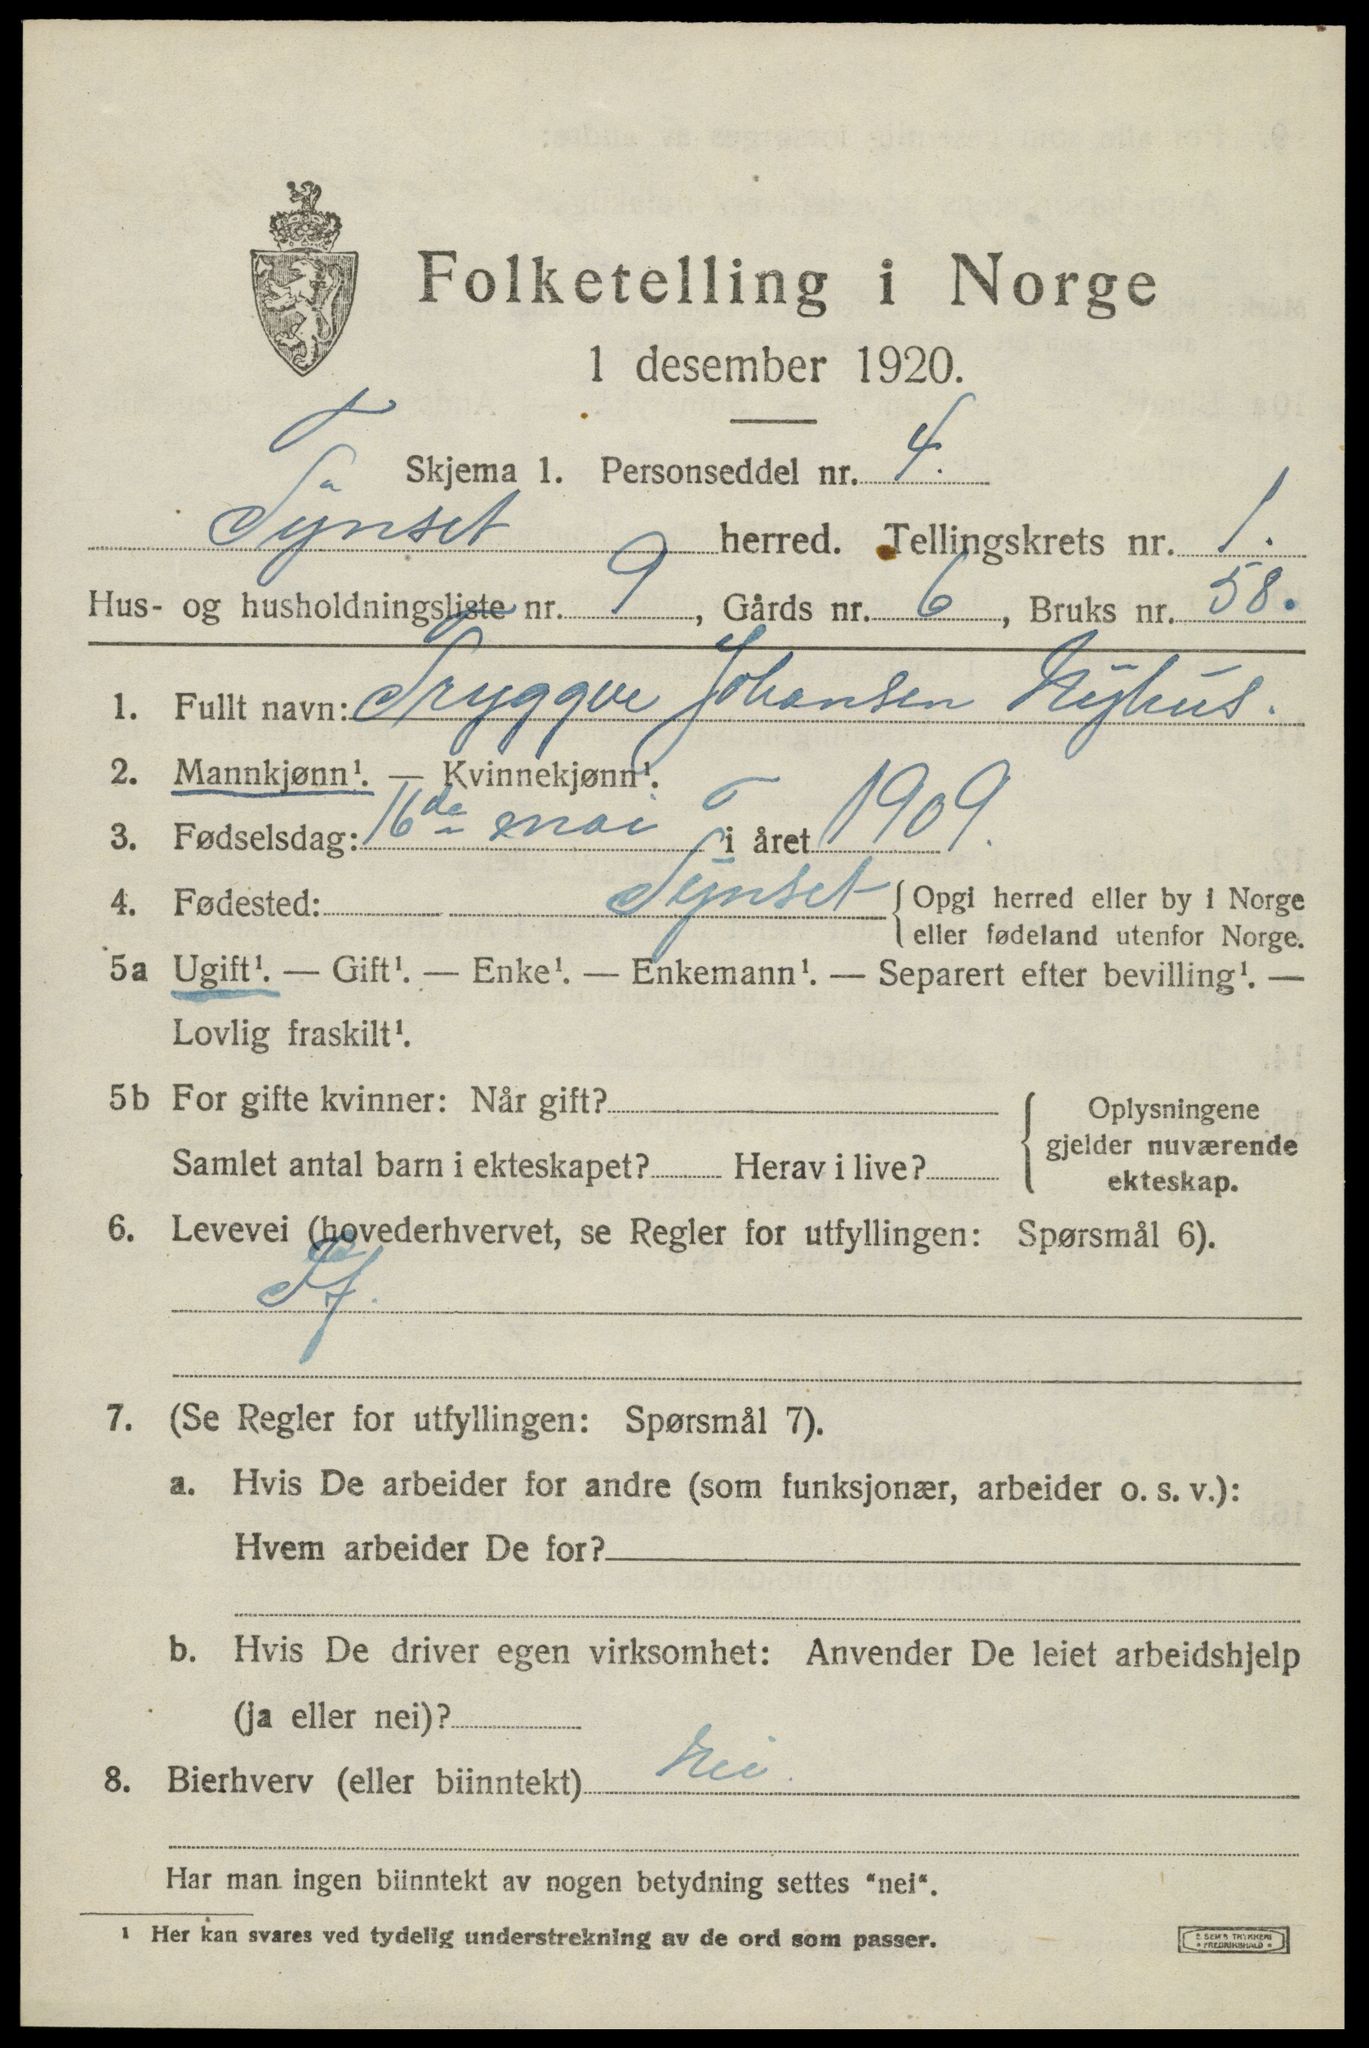 Folketelling i Norge
1 desember 1920.
Skjema 1. Personseddel nr. 4.
Tynset herred. Tellingskrets nr. 1.
Hus- og husholdningsliste nr. 9, Gårds nr. 6, Bruks nr. 58.
1. Fullt navn: Tryggve Johansen Nyhus.
2. Mannkjønn¹. — Kvinnekjønn¹.
3. Fødselsdag: 16de mai i året 1909.
4. Fødested: Tynset { Opgi herred eller by i Norge
eller fødeland utenfor Norge.
5a Ugift¹. — Gift¹. — Enke¹. — Enkemann¹. — Separert efter bevilling¹. —
Lovlig fraskilt¹.
5b For gifte kvinner: Når gift?
Samlet antal barn i ekteskapet? Herav i live?
{ Oplysningene
gjelder nuværende
ekteskap.
6. Levevei (hovederhvervet, se Regler for utfyllingen: Spørsmål 6).
7. (Se Regler for utfyllingen: Spørsmål 7).
a. Hvis De arbeider for andre (som funksjonær, arbeider o. s. v.):
Hvem arbeider De for?
b. Hvis De driver egen virksomhet: Anvender De leiet arbeidshjelp
(ja eller nei)?
8. Bierhverv (eller biinntekt) Nei.
Har man ingen biinntekt av nogen betydning settes "nei".
¹ Her kan svares ved tydelig understrekning av de ord som passer.
E. SEM'S TRYKKERI
* FREDRIKSHALD *